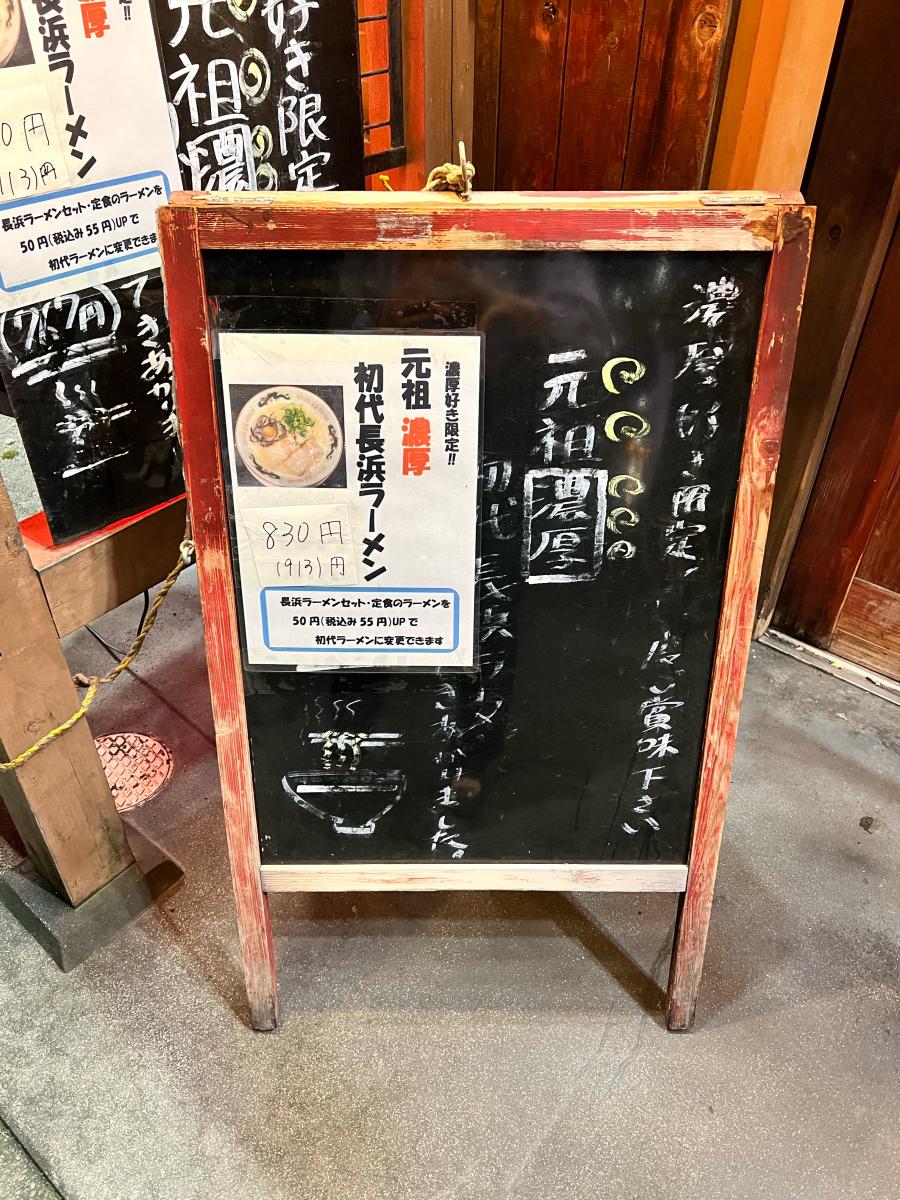 好き限定
元祖
濃
長浜ラーメン
0円
113)円
長浜ラーメンセット・定食のラーメンを
50円(税込み55円)UPで
初代ラーメンに変更できま
濃厚好き限定!!
元祖 濃厚
初代長浜ラーメン
830円
(913)円
長浜ラーメンセット・定食のラーメンを
50円(税込み55円)UPで
初代ラーメンに変更できます
元祖
濃厚
初代長浜ラーメン
賞味下さい
あがりました。